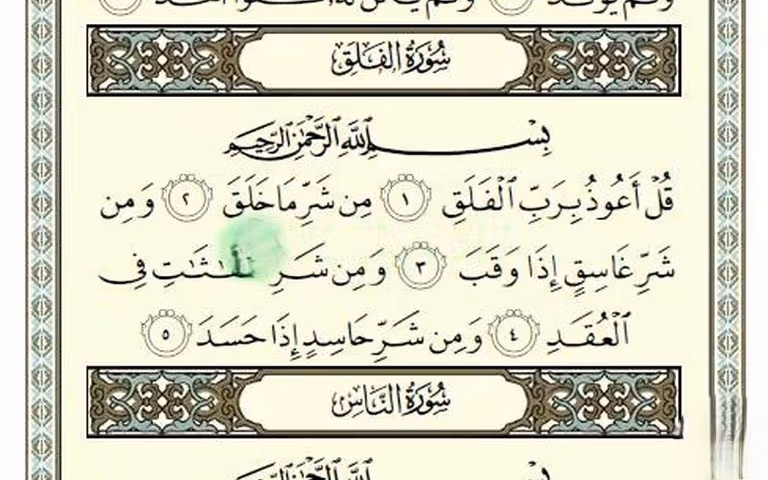 سُورَةُ الفَلَقِ
بِسْمِ اللَّهِ الرَّحْمَٰنِ الرَّحِيمِ
قُلْ أَعُوذُ بِرَبِّ ٱلْفَلَقِ ١ مِن شَرِّ مَا خَلَقَ ٢ وَمِن
شَرِّ غَاسِقٍ إِذَا وَقَبَ ٣ وَمِن شَرِ فِى
ٱلْعُقَدِ ٤ وَمِن شَرِّ حَاسِدٍ إِذَا حَسَدَ ٥
سُورَةُ النَّاسِ